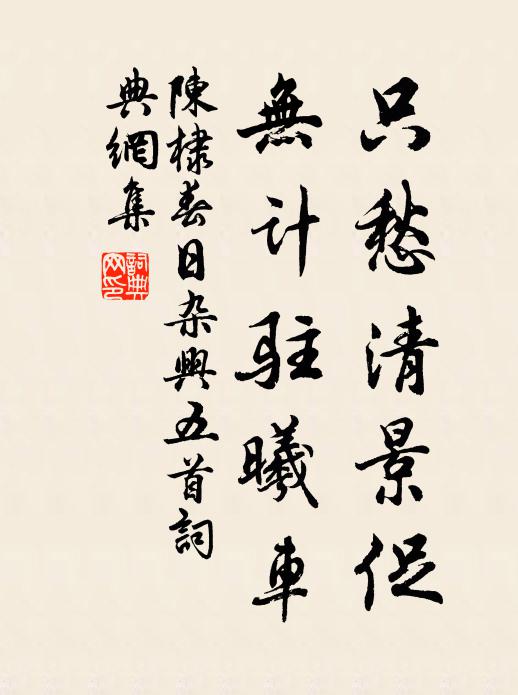 只愁清景促
無計駐曦車
陳棣春日杂興五首詞
典網集
詞典
网印